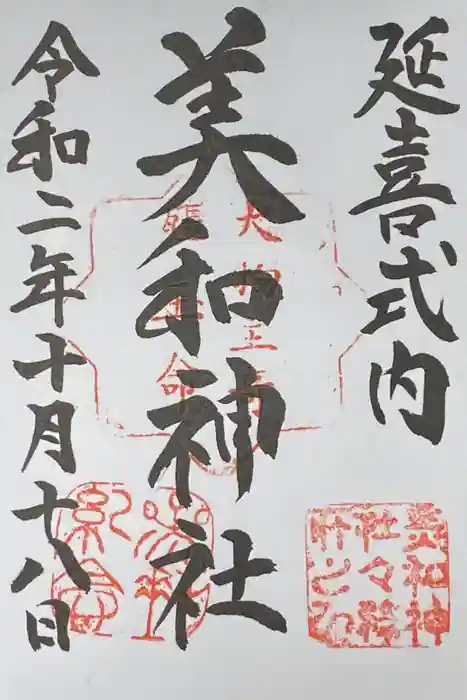 延喜式内
美和神社
令和二年十月十八日
美和神
社々務